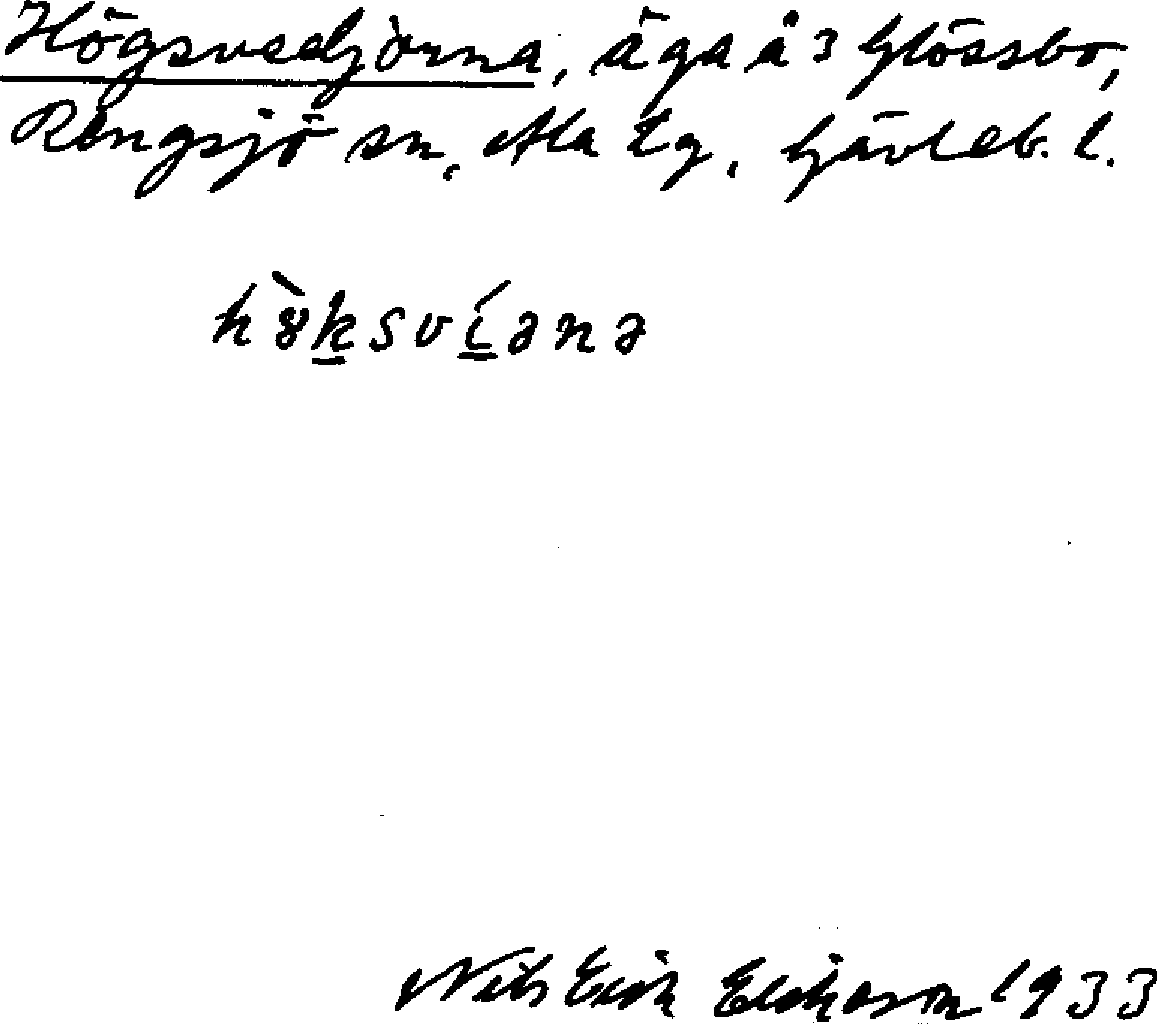 Högsvedjorna, äga å 3 Glössbo,
Rengsjö sn, Ala tg, Gävleb. l.
hø̀ksvíənə
Nils Erik Eliason 1933